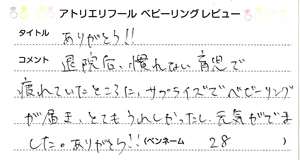 アトリエリフール ベビーリングレビュー
タイトル ありがとう!!
コメント 退院后、慣れない育児で
疲れていたところに、サプライズでベビーリング
が届き、とてもうれしかったし、元気がでま
した。ありがとう!! (ペンネーム 28 )